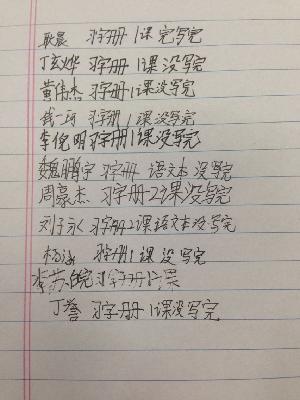 耿晨 习字册1课没写完
丁玄烨 习字册1课没写完
黄伟杰 习字册1课没写完
钱一珂 习字册1课没写完
李俊明 习字册1课没写完
魏鹏宇 习字册 语文本没写完
周豪杰 习字册2课没写完
刘子永 习字册2课语文本没写完
杨泳 习字册1课没写完
李苏皖 习字册1课
丁誉 习字册1课没写完